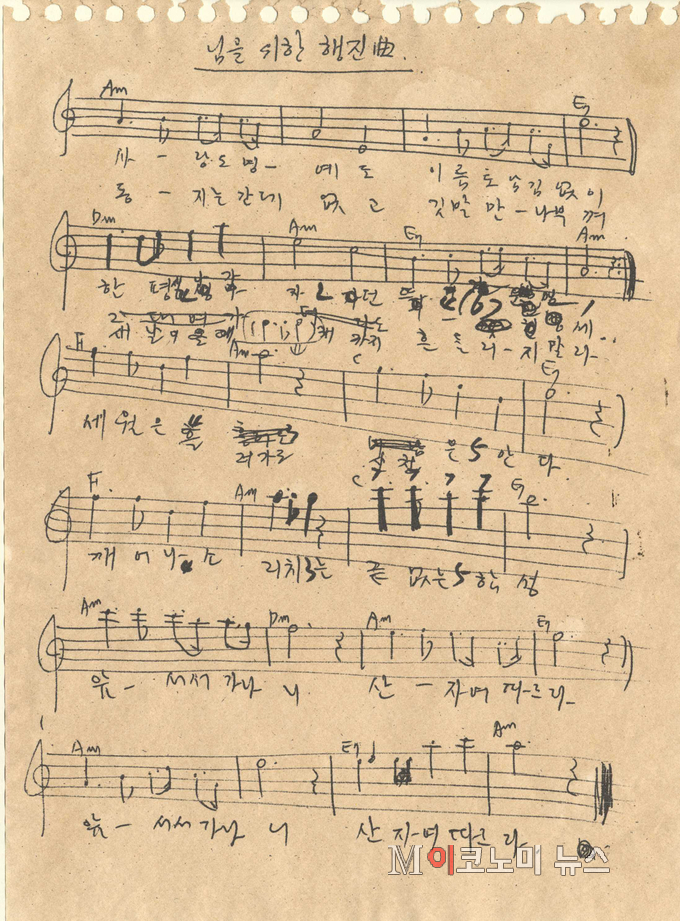 님을 위한 행진曲.
Am E7
사 - 랑도 명 - 예도 이름도 남김 없이
동 - 지는 간데 없고 깃발만 - 나부껴
Dm Am E7 Am
한 평생 나가 자던 뜨 세
새 날이 올 때 까지 흔들리 - 지 말라
F Am C E7
세월은 흘
러가도 산천은 안다
F Am C E7
깨어나 소 리치는 끝없는 함성
Am Dm Am E7
앞 - 서서 가나니 산 - 자여 따르라
Am E7 Am
앞 - 서서 가나니 산 자여 따르라
M이코노미 뉴스